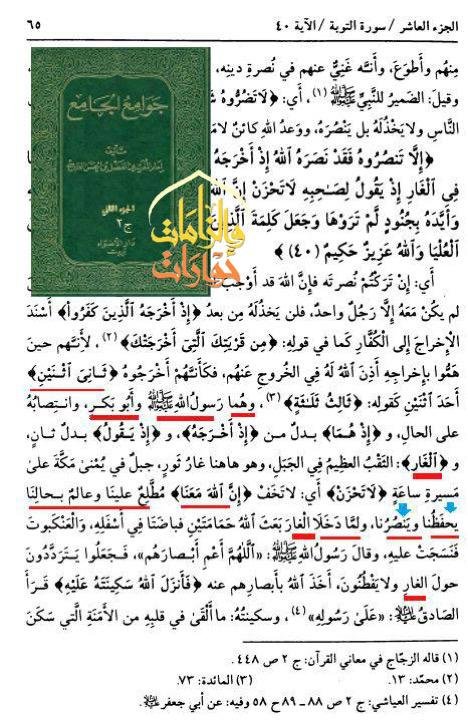 الجزء العاشر / سورة التوبة / الآية ٤٠
٦٥
منهم وأطوَعَ، وأنَّه غَنِيٌّ عنهم في نُصرةِ دينِه،
وقيلَ: الضميرُ للنبيِّ ﷺ (١)، أي: ﴿لَا تَضُرُّوهُ
الناسِ ولا يَخْذُلَهُ بل يَنْصُرَهُ، ووَعدُ اللهِ كائنٌ
﴿إِلَّا تَنصُرُوهُ فَقَدْ نَصَرَهُ ٱللهُ إِذْ أَخْرَجَهُ
فِي ٱلْغَارِ إِذْ يَقُولُ لِصَٰحِبِهِ لَا تَحْزَنْ إِنَّ ٱللهَ
وَأَيَّدَهُ بِجُنُودٍ لَّمْ تَرَوْهَا وَجَعَلَ كَلِمَةَ ٱلَّذِينَ
ٱلْعُلْيَا وَٱللهُ عَزِيزٌ حَكِيمٌ (٤٠)﴾
جوامع الجامع
تأليف
الجزء الثاني
ج ٢
والزامات
أي: إنْ تَرَكْتُم نُصرتَه فإنَّ اللهَ قد أوْجَبَ
لم يكُنْ مَعَهُ إلَّا رَجُلٌ واحدٌ، فلن يَخْذُلَهُ مِن بعدُ ﴿إِذْ أَخْرَجَهُ ٱلَّذِينَ كَفَرُواْ﴾ أَسْنَدَ
الإخراجَ إلى الكُفَّارِ كما في قولِهِ: ﴿مِن قَرْيَتِكَ ٱلَّتِىٓ أَخْرَجَتْكَ﴾ (٢)، لأنَّهم حينَ
هَمُّوا بإخراجِهِ أَذِنَ اللهُ لَهُ في الخُروجِ عنهم، فكأنَّهم أَخْرَجوهُ ﴿ثَانِىَ ٱثْنَيْنِ﴾
أَحَدَ اثْنَيْنِ كقولِه: ﴿ثَالِثُ ثَلَٰثَةٍ﴾ (٣)، وهُما رسولُ اللهِ ﷺ وأبو بَكرٍ، وانتصابُهُ
على الحالِ، و ﴿إِذْ هُمَا﴾ بدلٌ مـن ﴿إِذْ أَخْـرَجَهُ﴾، و ﴿إِذْ يَـقُولُ﴾ بـدلٌ ثـانٍ،
و ﴿ٱلْغَارِ﴾: الثَّقْبُ العظيمُ في الجَبَلِ، وهو هاهنا غارُ ثَورٍ، جبلٌ في يُمْنىٰ مَكَّةَ علىٰ
مَسيرةِ ساعَةٍ ﴿لَا تَحْزَنْ﴾ أي: لا تَخَفْ ﴿إِنَّ ٱللهَ مَعَنَا﴾ مُطَّلِعٌ علينا وعالمٌ بـحالِنا
يحفَظُنا ويَنصُرُنا، ولمَّا دَخَلَا الغارَ بَعَثَ اللهُ حَمَامَتَيْنِ فباضَتَا في أسْفَلِهِ، والعَنْكَبوتَ
فنَسَجَتْ عليهِ، وقالَ رسولُ اللهِ ﷺ: «اللَّهُمَّ أَعْمِ أبْصارَهم»، فـجَعَلُوا يـتَردَّدُونَ
حولَ الغارِ ولا يَفْطُنُونَ، أخَذَ اللهُ بأبصارِهم عنه ﴿فَأَنزَلَ ٱللهُ سَكِينَتَهُ عَلَيْهِ﴾ قَـرَأَ
الصادقُ ؑ: «عَلَىٰ رَسُولِهِ» (٤)، وسكينتُهُ: ما ألْقَىٰ في قلبِهِ من الأمَنَةِ الَّتي سَكَنَ
(١) قاله الزجّاج في معاني القرآن: ج ٢ ص ٤٤٨.
(٢) محمّد: ١٣. (٣) المائدة: ٧٣.
(٤) تفسير العياشي: ج ٢ ص ٨٨ ـ ٨٩ ح ٥٨ وفيه: عن أبي جعفر ؑ.